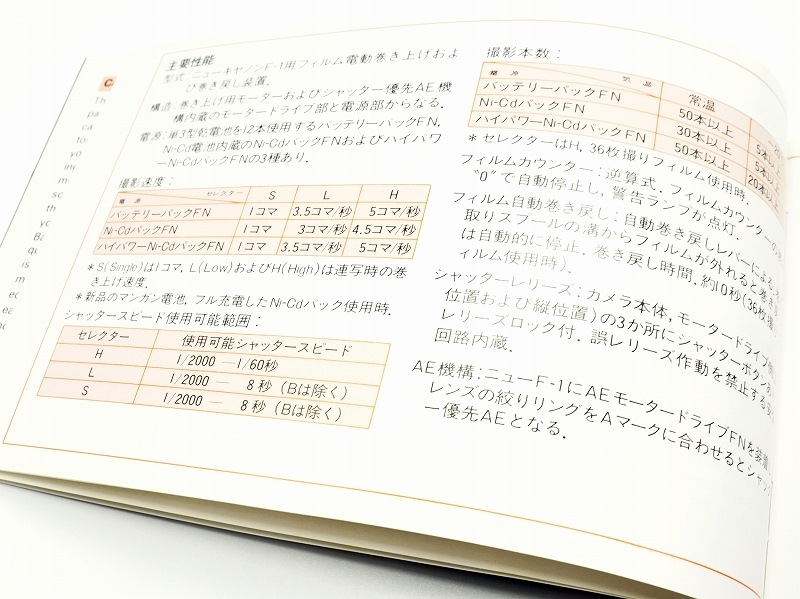 C
Th
pa
ca
to
yo
in
m
sc
th
yc
Ba
qu
is
m
ec
ea
no
主要性能
型式：ニューキヤノンF-1用フィルム電動巻き上げおよ
び巻き戻し装置.
構造：巻き上げ用モーターおよびシャッター優先AE機
構内蔵のモータードライブ部と電源部からなる.
電源：単3型乾電池を12本使用するバッテリーパックFN,
Ni-Cd電池内蔵のNi-CdパックFNおよびハイパワ
ーNi-CdパックFNの3種あり.
撮影速度：
電源 セレクター S L H
バッテリーパックFN 1コマ 3.5コマ/秒 5コマ/秒
Ni-CdパックFN 1コマ 3コマ/秒 4.5コマ/秒
ハイパワーNi-CdパックFN 1コマ 3.5コマ/秒 5コマ/秒
＊S(Single)は1コマ, L(Low)およびH(High)は連写時の巻
き上げ速度.
＊新品のマンガン電池, フル充電したNi-Cdパック使用時.
シャッタースピード使用可能範囲：
セレクター 使用可能シャッタースピード
H 1/2000 — 1/60秒
L 1/2000 — 8秒（Bは除く）
S 1/2000 — 8秒（Bは除く）
撮影本数：
電源 気温 常温
バッテリーパックFN 50本以上 5本
Ni-CdパックFN 30本以上 5本以
ハイパワーNi-CdパックFN 50本以上 20本以
＊セレクターはH, 36枚撮りフィルム使用時.
フィルムカウンター：逆算式. フィルムカウンターの
"0"で自動停止し, 警告ランプが点灯.
フィルム自動巻き戻し：自動巻き戻しレバーによる.
取りスプールの溝からフィルムが外れると巻き戻
は自動的に停止. 巻き戻し時間. 約10秒(36枚撮
ィルム使用時).
シャッターレリーズ：カメラ本体, モータードライブ
位置および縦位置)の3か所にシャッターボタン
レリーズロック付. 誤レリーズ作動を禁止する
回路内蔵.
AE機構：ニューF-1にAEモータードライブFNを装着
レンズの絞りリングをAマークに合わせるとシャッ
ー優先AEとなる.